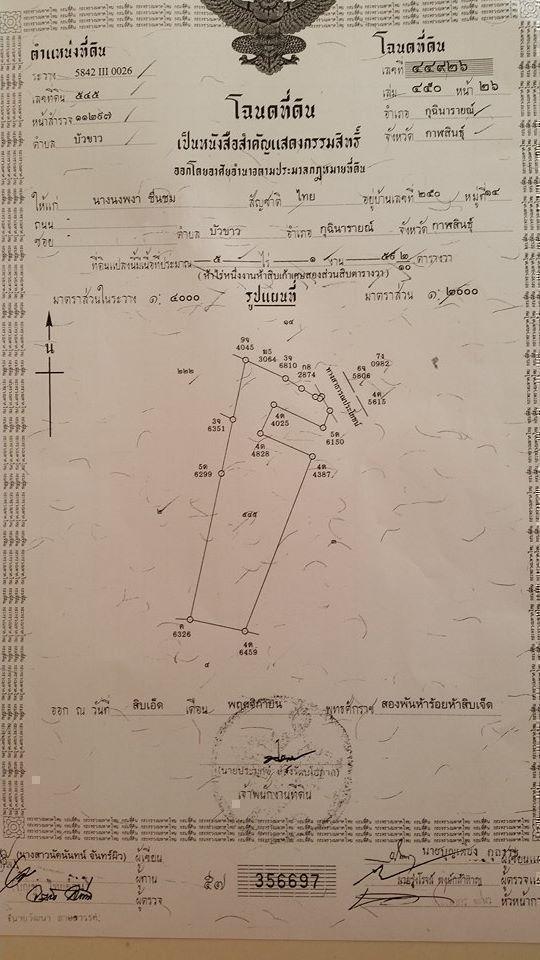 ตำแหน่งที่ดิน
ระวาง 5842 III 0026
เลขที่ดิน ๕๔๕
หน้าสำรวจ ๑๑๒๙๗
ตำบล บัวขาว
โฉนดที่ดิน
เลขที่ ๔๔๙๒๖
เล่ม ๔๕๐ หน้า ๒๖
อำเภอ กุฉินารายณ์
จังหวัด กาฬสินธุ์
โฉนดที่ดิน
เป็นหนังสือสำคัญแสดงกรรมสิทธิ์
ออกโดยอาศัยอำนาจตามประมวลกฎหมายที่ดิน
ให้แก่ นางนงพงา ชื่นชม สัญชาติ ไทย อยู่บ้านเลขที่ ๒๕๐ หมู่ที่ ๑๔
ถนน -
ซอย - ตำบล บัวขาว อำเภอ กุฉินารายณ์ จังหวัด กาฬสินธุ์
ที่ดินแปลงนี้มีเนื้อที่ประมาณ ๕ ไร่ ๑ งาน ๕๙ ๒/๑๐ ตารางวา
( ห้าไร่หนึ่งงานห้าสิบเก้าเศษสองส่วนสิบตารางวา )
มาตราส่วนในระวาง ๑: ๔๐๐๐ รูปแผนที่ มาตราส่วน ๑: ๒๐๐๐
น
๑๔
9จ
4045
3064
3จ
6810
กฮ
2874
ทางสาธารณประโยชน์
7ง
0982
6จ
5806
4ด
5615
๒๒๒
4ด
4025
3จ
6351
5ด
6150
4ด
4828
4ด
4387
5ด
6299
๒
๕๔๕
ด
6326
4ด
6459
๔
ออก ณ วันที่ สิบเอ็ด เดือน พฤศจิกายน พุทธศักราช สองพันห้าร้อยห้าสิบเจ็ด
เจ้าพนักงานที่ดิน
(นางสาวนัดนันทน์ จันทร์ผิว) ผู้เขียน
ผู้ทาน
ผู้ตรวจ
๕๗ 356697